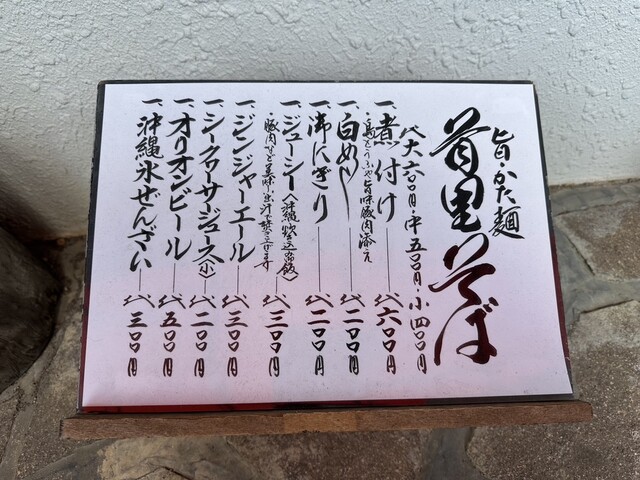 旨・かた麺
首里そば
代大六〇〇円・中五〇〇円・小四〇〇円
一、煮付け――代六〇〇円
・島とうふや旨味豚肉添え
一、白めし――代二〇〇円
一、御にぎり――代二〇〇円
一、ジューシー〈沖縄炊込御飯〉――代三〇〇円
・豚肉など美味出汁で炊き上げます
一、ジンジャーエール――代三〇〇円
一、シークワーサージュース(小)――代二〇〇円
一、オリオンビール――代五〇〇円
一、沖縄氷ぜんざい――代三〇〇円